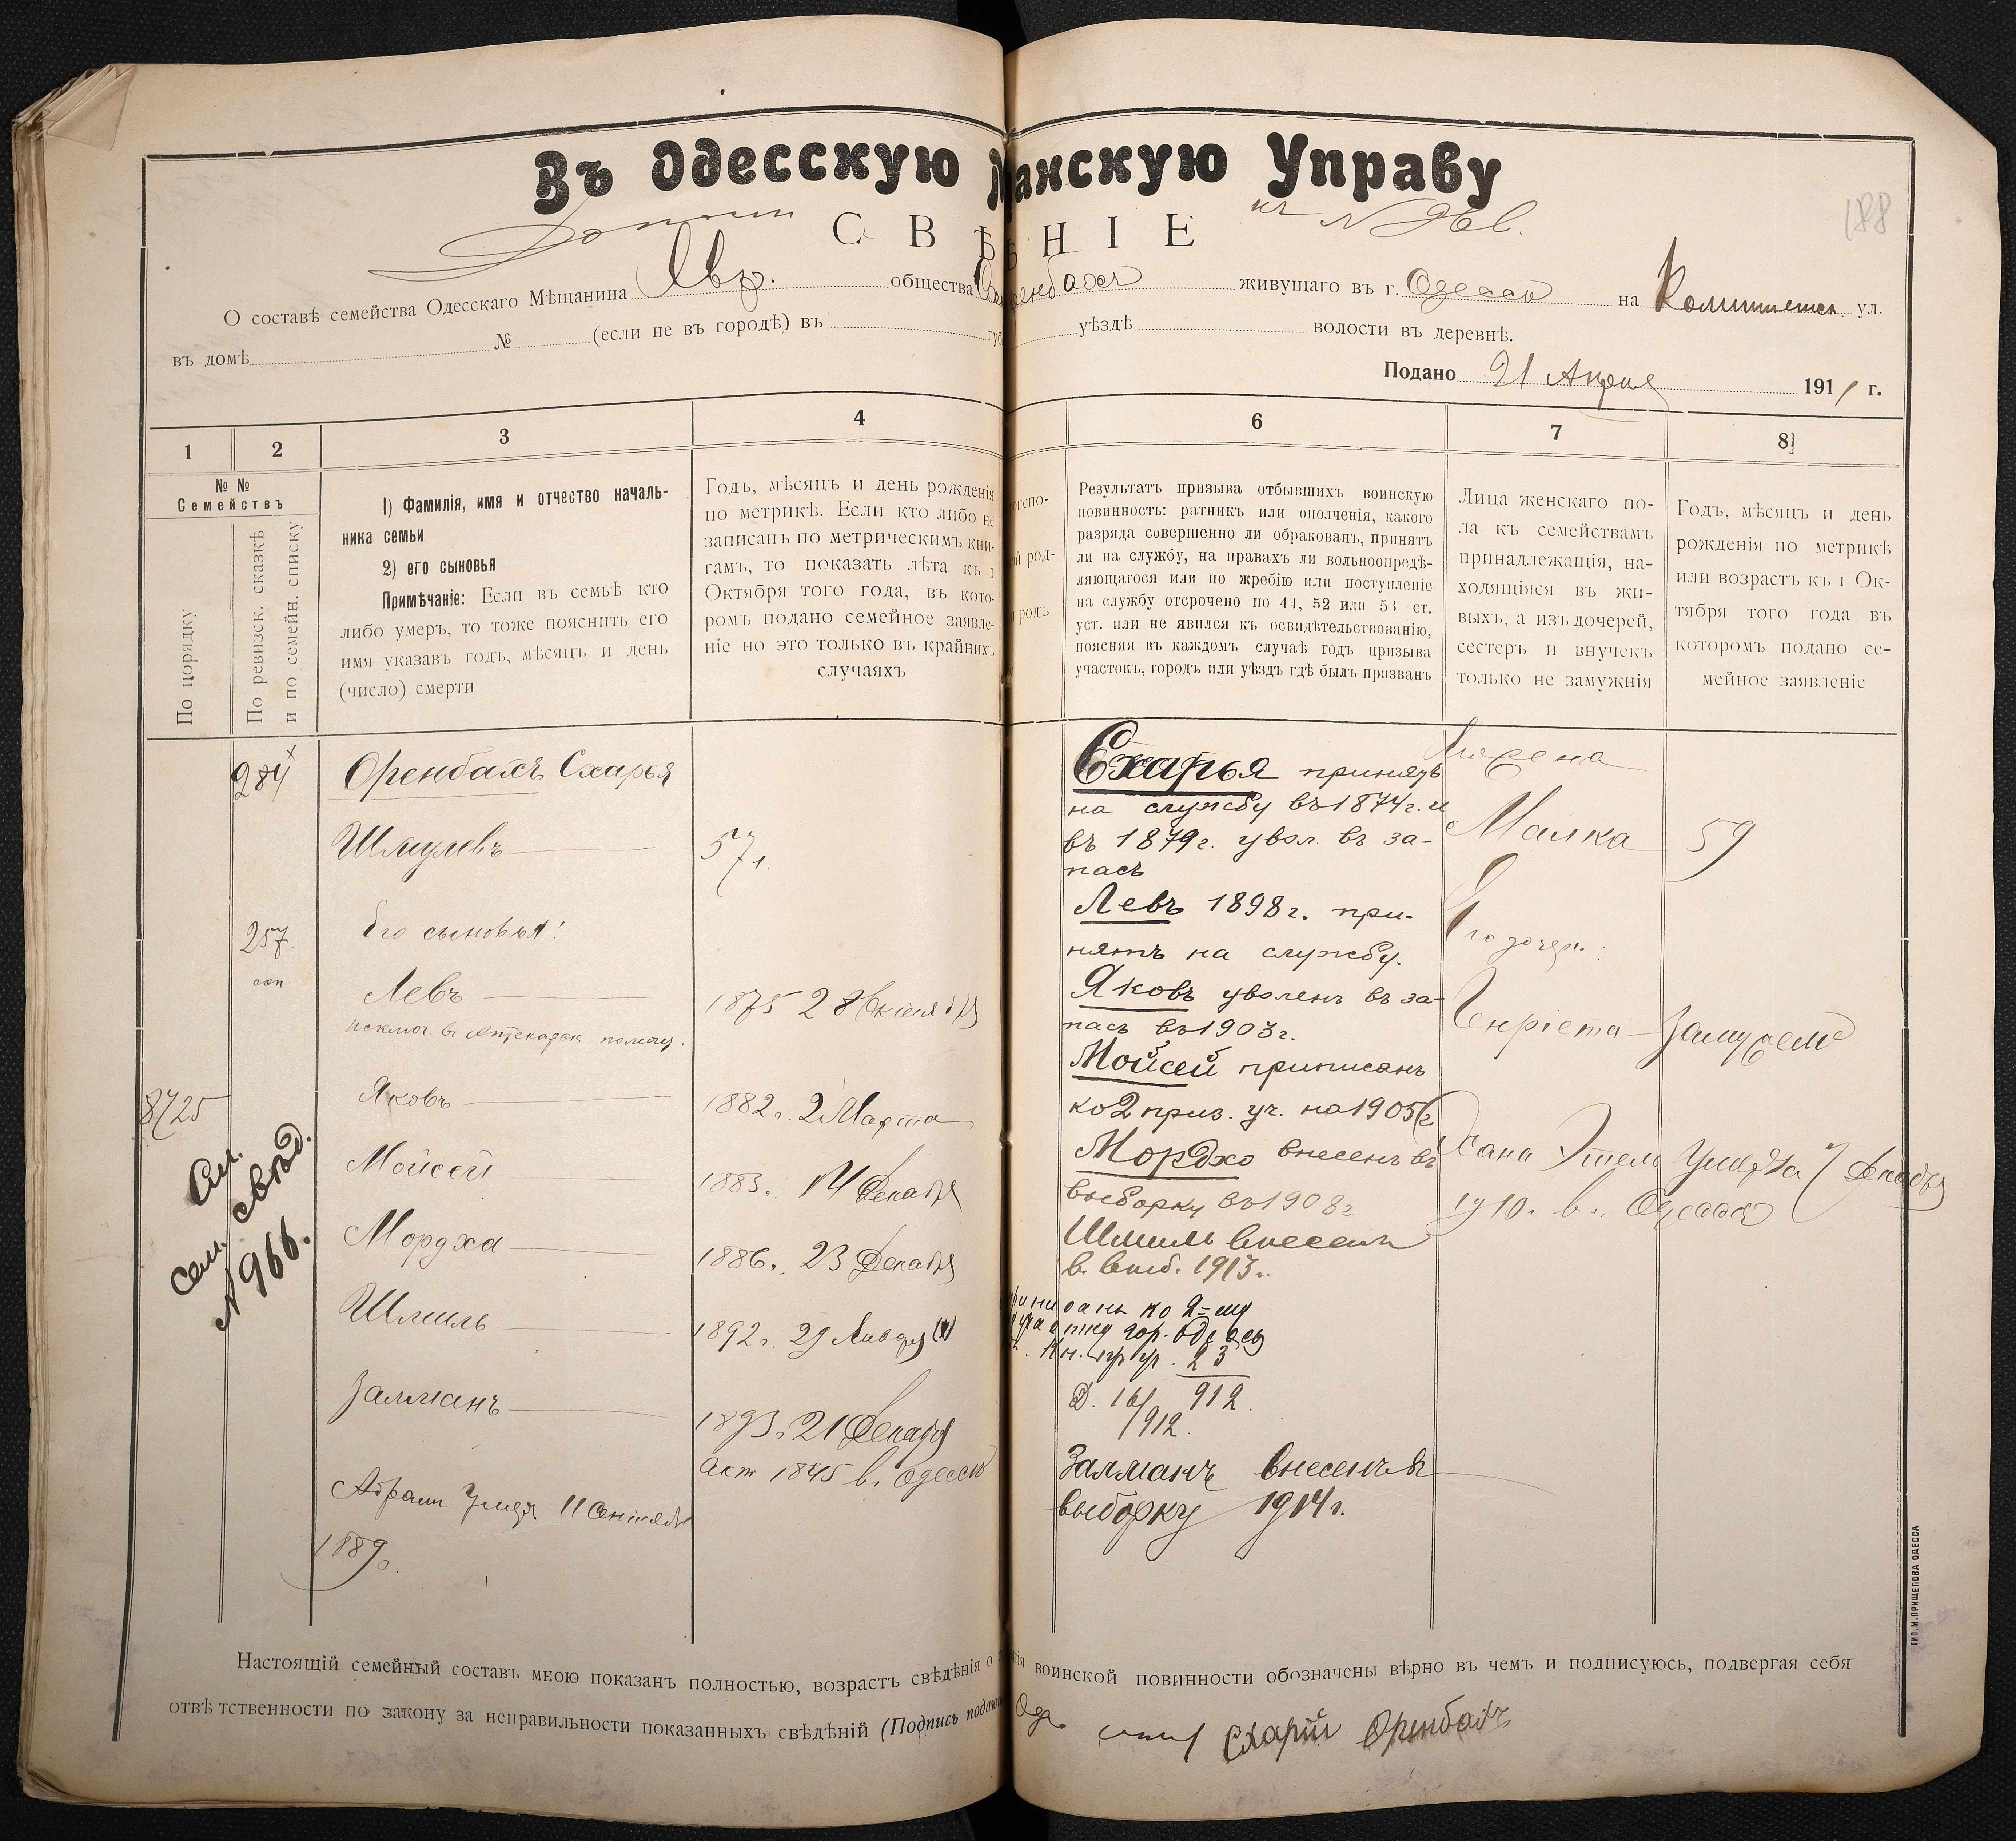 Въ Одесскую анскую Управу
188
СВѢНІЕ
О составѣ семейства Одесскаго Мѣщанина Евр. общества Оренбахъ живущаго въ г. Одессѣ на ул.
въ домѣ № (если не въ городѣ) въ губ уѣздѣ волости въ деревнѣ.
Подано 21 Апреля 1911 г.
1 2 3 4 6 7 8
№ №
Семействъ
По порядку
По ревизск. сказкѣ
и по семейн. списку
1) Фамилія, имя и отчество началь-
ника семьи
2) его сыновья
Примѣчаніе: Если въ семьѣ кто
либо умеръ, то тоже пояснить его
имя указавъ годъ, мѣсяцъ и день
(число) смерти
Годъ, мѣсяцъ и день рожденія
по метрикѣ. Если кто либо не
записанъ по метрическимъ кни-
гамъ, то показать лѣта къ 1
Октября того года, въ кото-
ромъ подано семейное заявле-
ніе но это только въ крайнихъ
случаяхъ
Результатъ призыва отбывшихъ воинскую
повинность: ратникъ или ополченія, какого
разряда совершенно ли обракованъ, принятъ
ли на службу, на правахъ ли вольноопредѣ-
ляющагося или по жребію или поступленіе
на службу отсрочено по 44, 52 или 53 ст.
уст. или не явился къ освидѣтельствованію,
поясняя въ каждомъ случаѣ годъ призыва
участокъ, городъ или уѣздъ гдѣ былъ призванъ
Лица женскаго по-
ла къ семействамъ
принадлежащія, на-
ходящіяся въ жи-
выхъ, а изъ дочерей,
сестеръ и внучекъ
только не замужнія
Годъ, мѣсяцъ и день
рожденія по метрикѣ
или возрастъ къ 1 Ок-
тября того года въ
которомъ подано се-
мейное заявленіе
284
Оренбахъ Схарья
Шмулевъ
57 л.
257
Его сыновья:
Левъ
1875 28 Октября
8725
Яковъ
1882 г. 2 Марта
Мойсей
1883 г. 14 Декабря
См.
свѣд.
сем.
№ 966.
Мордха
1886 г. 23 Декабря
Шмиль
1892 г. 29 Января
Залманъ
1893 г. 21 Декабря
Акт 1845 в г. Одессѣ
Абрам Умер 11 Сентября
1889 г.
Схарья принятъ
на службу въ 1874 г. и
въ 1879 г. увол. въ за-
пасъ
Левъ 1898 г. при-
нятъ на службу.
Яковъ уволенъ въ за-
пасъ въ 1903 г.
Мойсей приписанъ
ко 2 приз. уч. на 1905 г.
Мордхо внесенъ въ
выборку въ 1908 г.
Шмиль внесенъ
в выб. 1913 г.
ко 2-му
гор. Одессы
23
912.
Д. 16/
/912.
Залманъ внесенъ в
выборку 1914 г.
Жена
Малка 59
Его дочери:
Генріета замужем
Хана Этель Умерла 7 Декабря
1910 г. в г. Одессѣ
Настоящій семейный составъ мною показанъ полностью, возрастъ свѣдѣнія о воинской повинности обозначены вѣрно въ чемъ и подписуюсь, подвергая себя
отвѣтственности по закону за неправильности показанныхъ свѣдѣній (Подпись Схарій Оренбахъ
ТИП. М. ПРИЩЕПОВА ОДЕССА